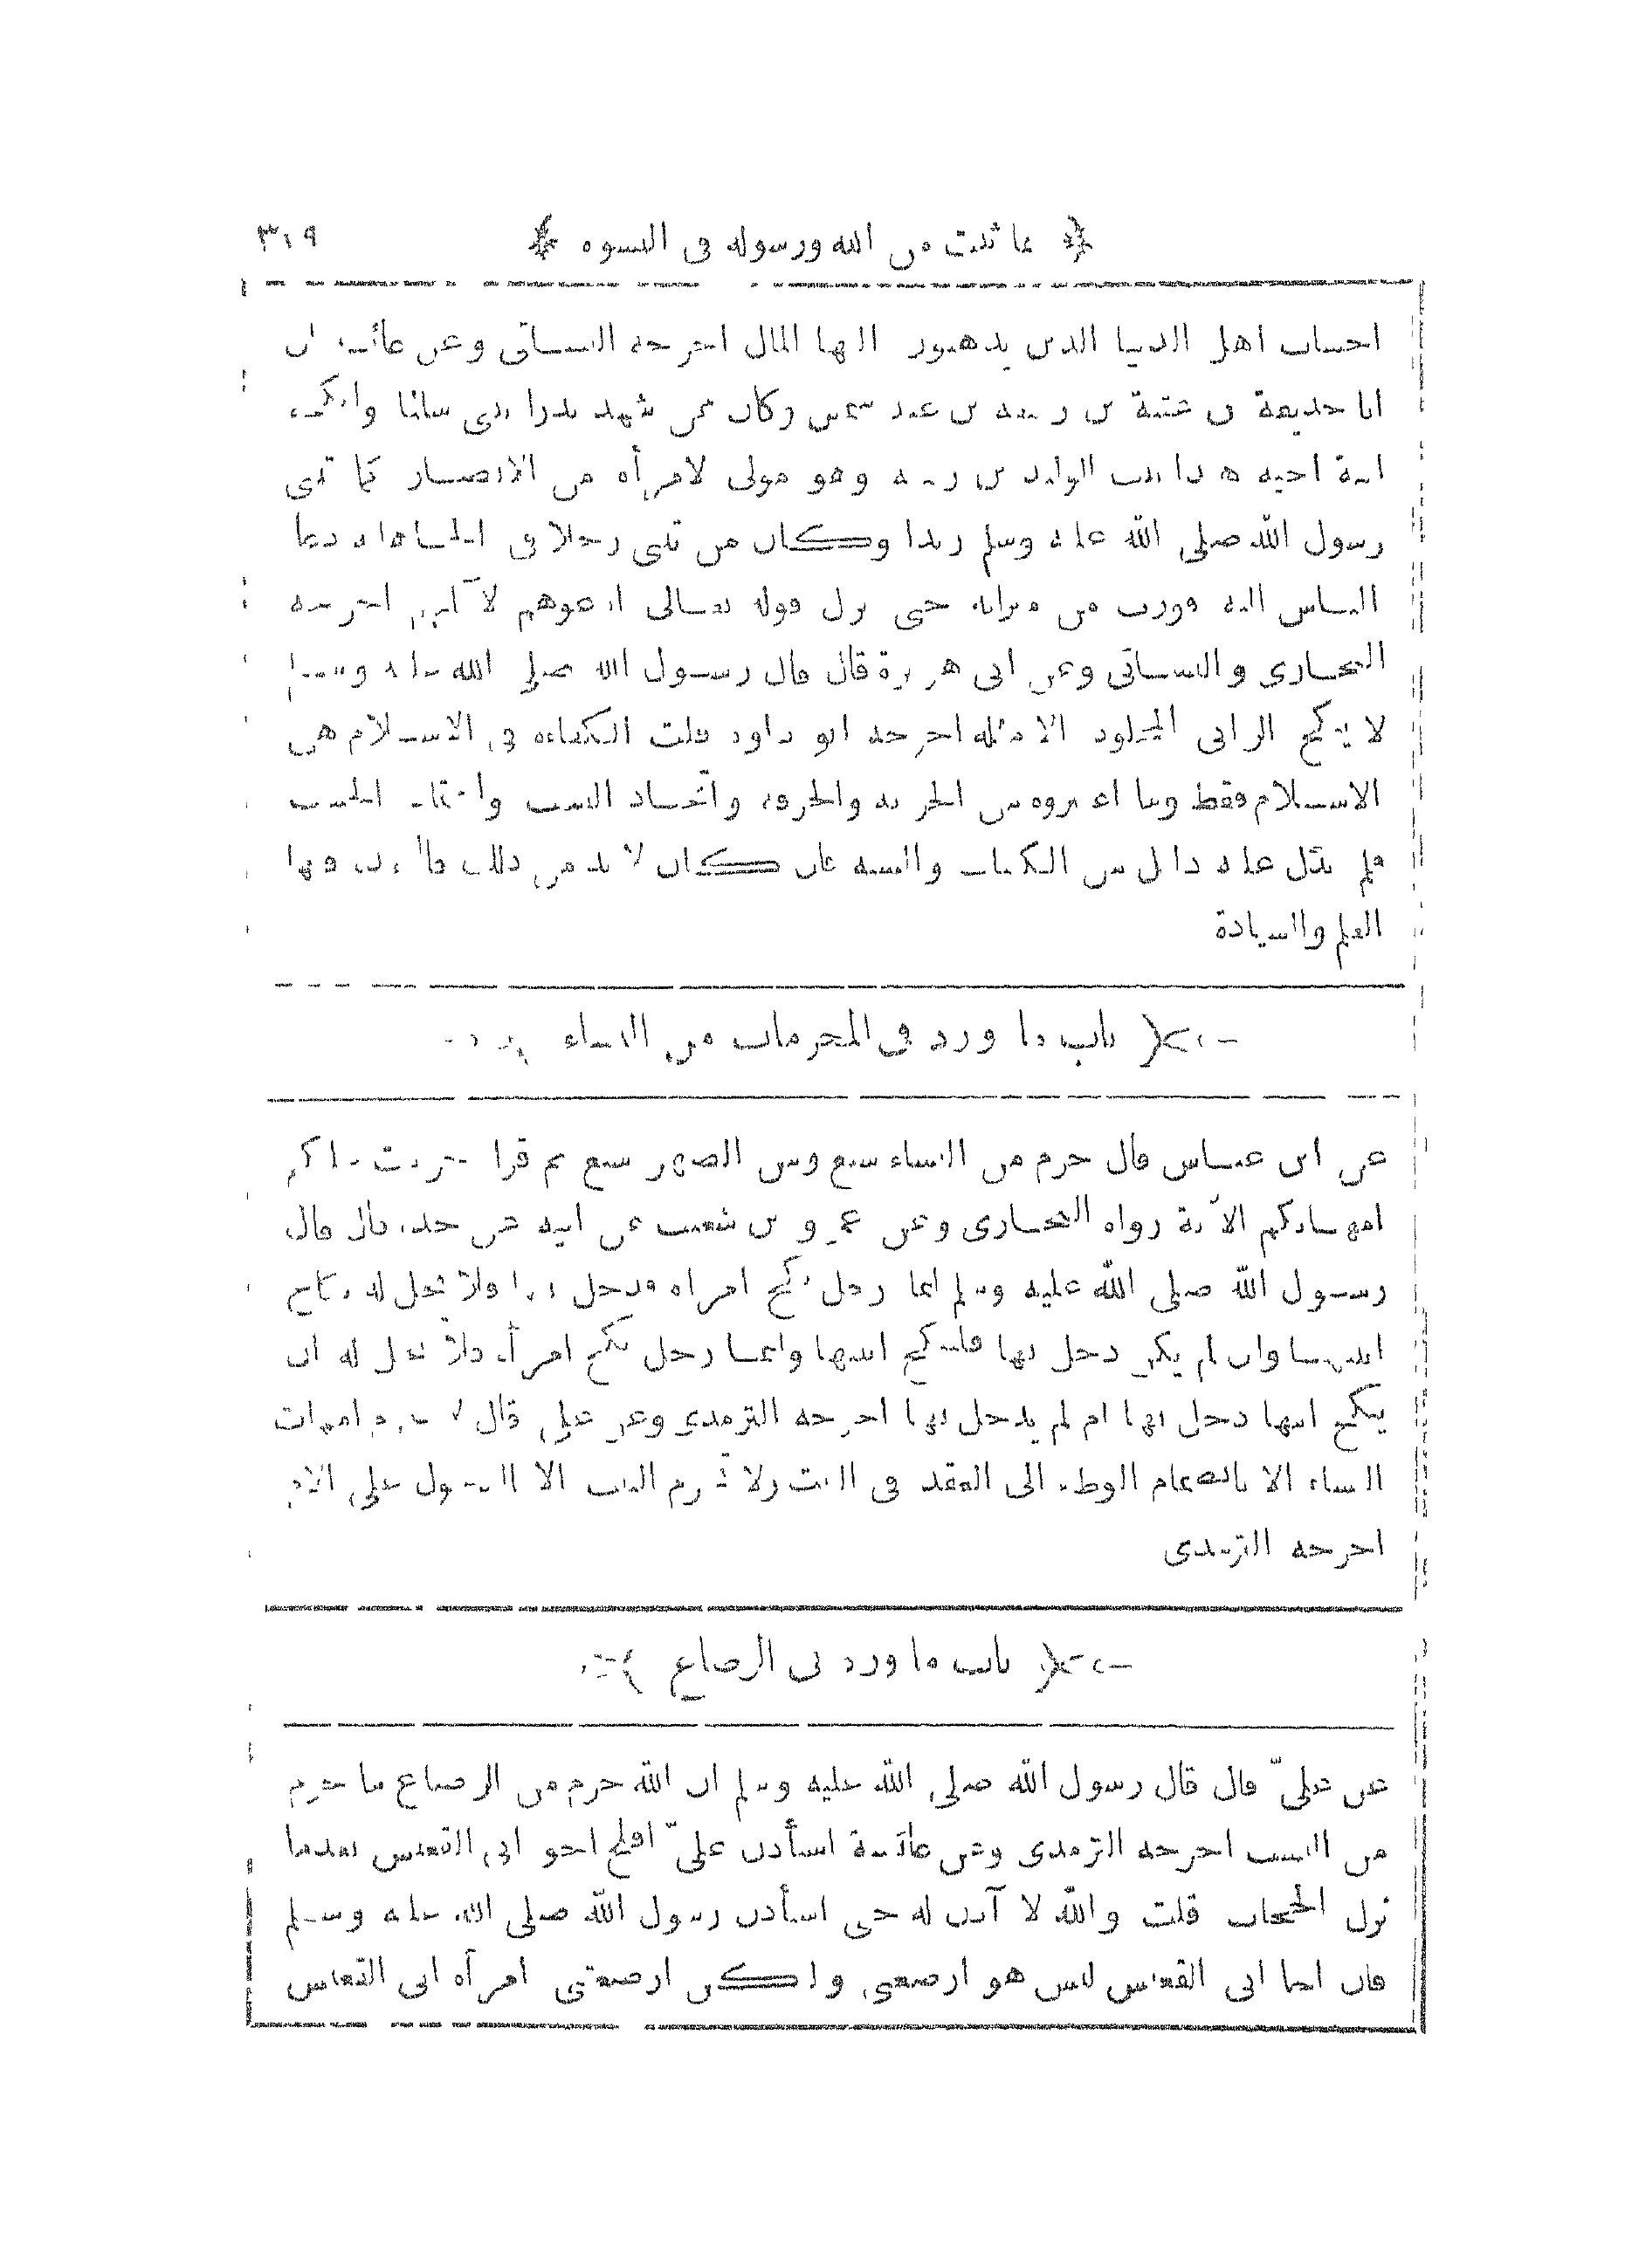 ما ثبت من الله ورسوله فى النسوة ٣٠٩
احساب اهل الدنيا الذين يذهبون اليها المال اخرجه النسائى وعن عائشة ان
ابا حذيفة بن عتبة بن ربيعة بن عبد شمس وكان ممن شهد بدرا تبنى سالما وانكحه
ابنة اخيه هندا بنت الوليد بن ربيعة وهو مولى لامرأة من الانصار كما تبنى
رسول الله صلى الله عليه وسلم زيدا وكان من تبنى رجلا فى الجاهلية دعاه
الناس اليه وورث من ميراثه حتى نزل قوله تعالى ادعوهم لآبائهم اخرجه
البخارى والنسائى وعن ابى هريرة قال قال رسول الله صلى الله عليه وسلم
لا ينكح الزانى المجلود الا مثله اخرجه ابو داود قلت الكفاءة فى الاسلام هى
الاسلام فقط وما اعتبروه من الحرية والحرفة واتحاد النسب الحسب
فلم يدل عليه دليل من الكتاب والسنة فان كان لا بد من ذلك فيها
العلم والسيادة
باب ما ورد فى المحرمات من النساء
عن ابن عباس قال حرم من النساء سبع ومن الصهر سبع ثم قرأ حرمت عليكم
امهاتكم الآية رواه البخارى وعن عمرو بن شعيب عن ابيه عن جده قال قال
رسول الله صلى الله عليه وسلم ايما رجل نكح امرأة فدخل بها فلا تحل له نكاح
ابنتها وان لم يكن دخل بها فلينكح ابنتها وايما رجل نكح امرأة فلا تحل له ان
ينكح امها دخل بها ام لم يدخل بها اخرجه الترمذى وعن على قال لا تحرم امهات
النساء الا بانضمام الوطء الى العقد فى البنت ولا تحرم البنت الا بالدخول على الام
اخرجه الترمذى
باب ما ورد فى الرضاع
عن علىّ قال قال رسول الله صلى الله عليه وسلم ان الله حرم من الرضاع ما حرم
من النسب اخرجه الترمذى وعن عائشة استأذن علىّ افلح اخو ابى القعيس بعدما
نزل الحجاب قلت والله لا آذن له حتى استأذن رسول الله صلى الله عليه وسلم
فان اخا ابى القعيس ليس هو ارضعنى ولكن ارضعتنى امرأة ابى القعيس